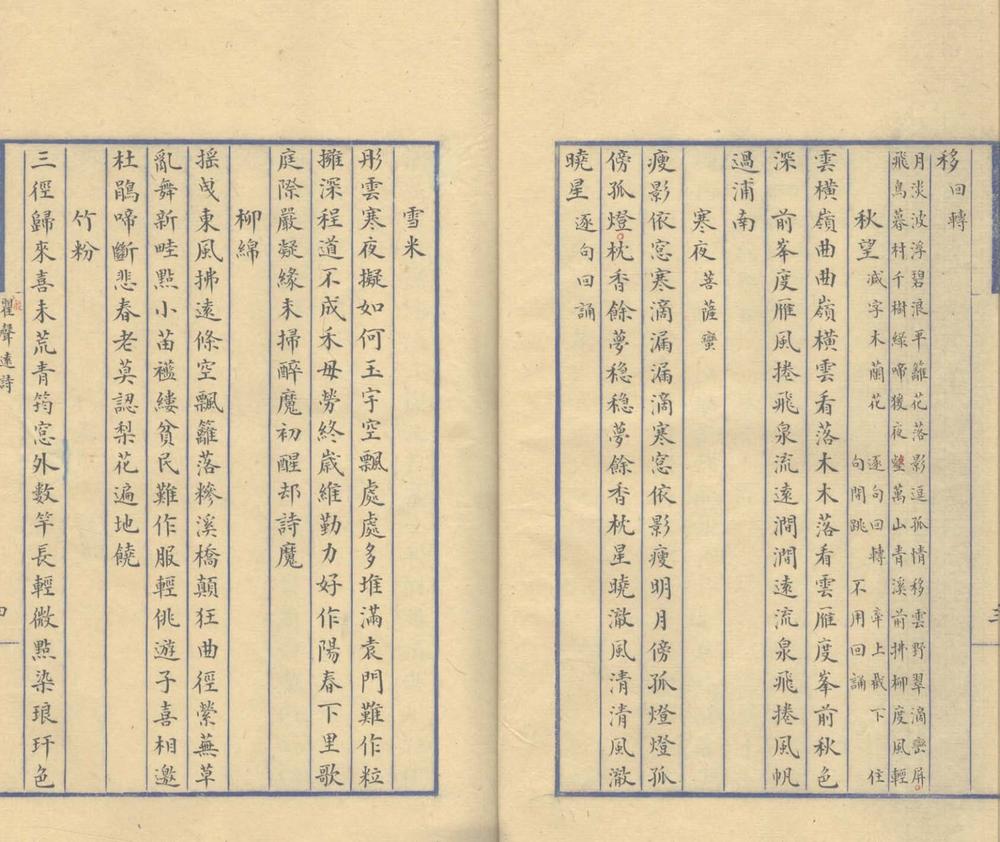 移回轉
月淡波浮碧浪平籬花落影逗孤情移雲野翠滴巒屏
飛鳥暮村千樹綠啼猨夜壑萬山青溪前拂柳度風輕
秋望 減字木蘭花 逐句回轉 牽上截下 住
句閒跳 不用回誦
雲橫嶺曲曲嶺橫雲看落木木落看雲雁度峯前秋色
深 前峯度雁風捲飛泉流遠澗澗遠流泉飛捲風帆
過浦南
寒夜 菩薩蠻
瘦影依窓寒滴漏漏滴寒窓依影瘦明月傍孤燈燈孤
傍孤燈枕香餘夢穏穏夢餘香枕星曉澈風清清風澈
曉星 逐句回誦
雪米
彤雲寒夜擬如何玉宇空飄處處多堆滿袁門難作粒
擁深程道不成禾毋勞終歲維勤力好作陽春下里歌
庭際嚴凝緣未掃醉魔初醒却詩魔
柳綿
搖曵東風拂遠條空飄籬落糝溪橋顛狂曲徑縈蕪草
亂舞新畦點小苗襤縷貧民難作服輕佻遊子喜相邀
杜鵑啼斷悲春老莫認梨花遍地饒
竹粉
三徑歸來喜未荒青筠窓外數竿長輕微點染琅玕色
瞿聲遠詩
四